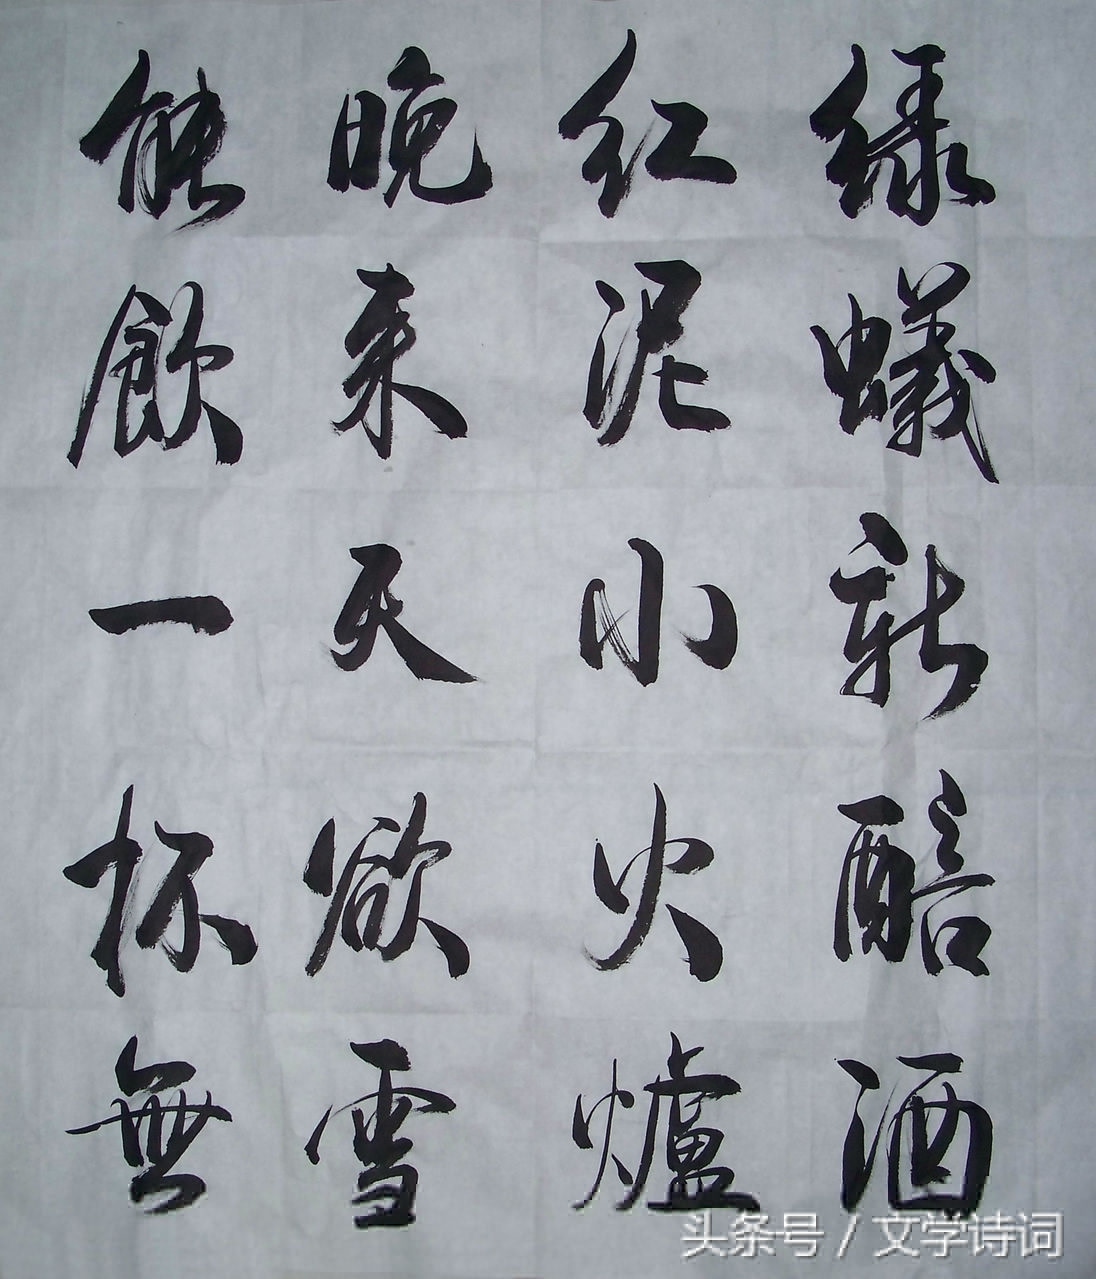 绿蟻新醅酒
红泥小火爐
晚来天欲雪
能飲一杯無
头条号 / 文学诗词